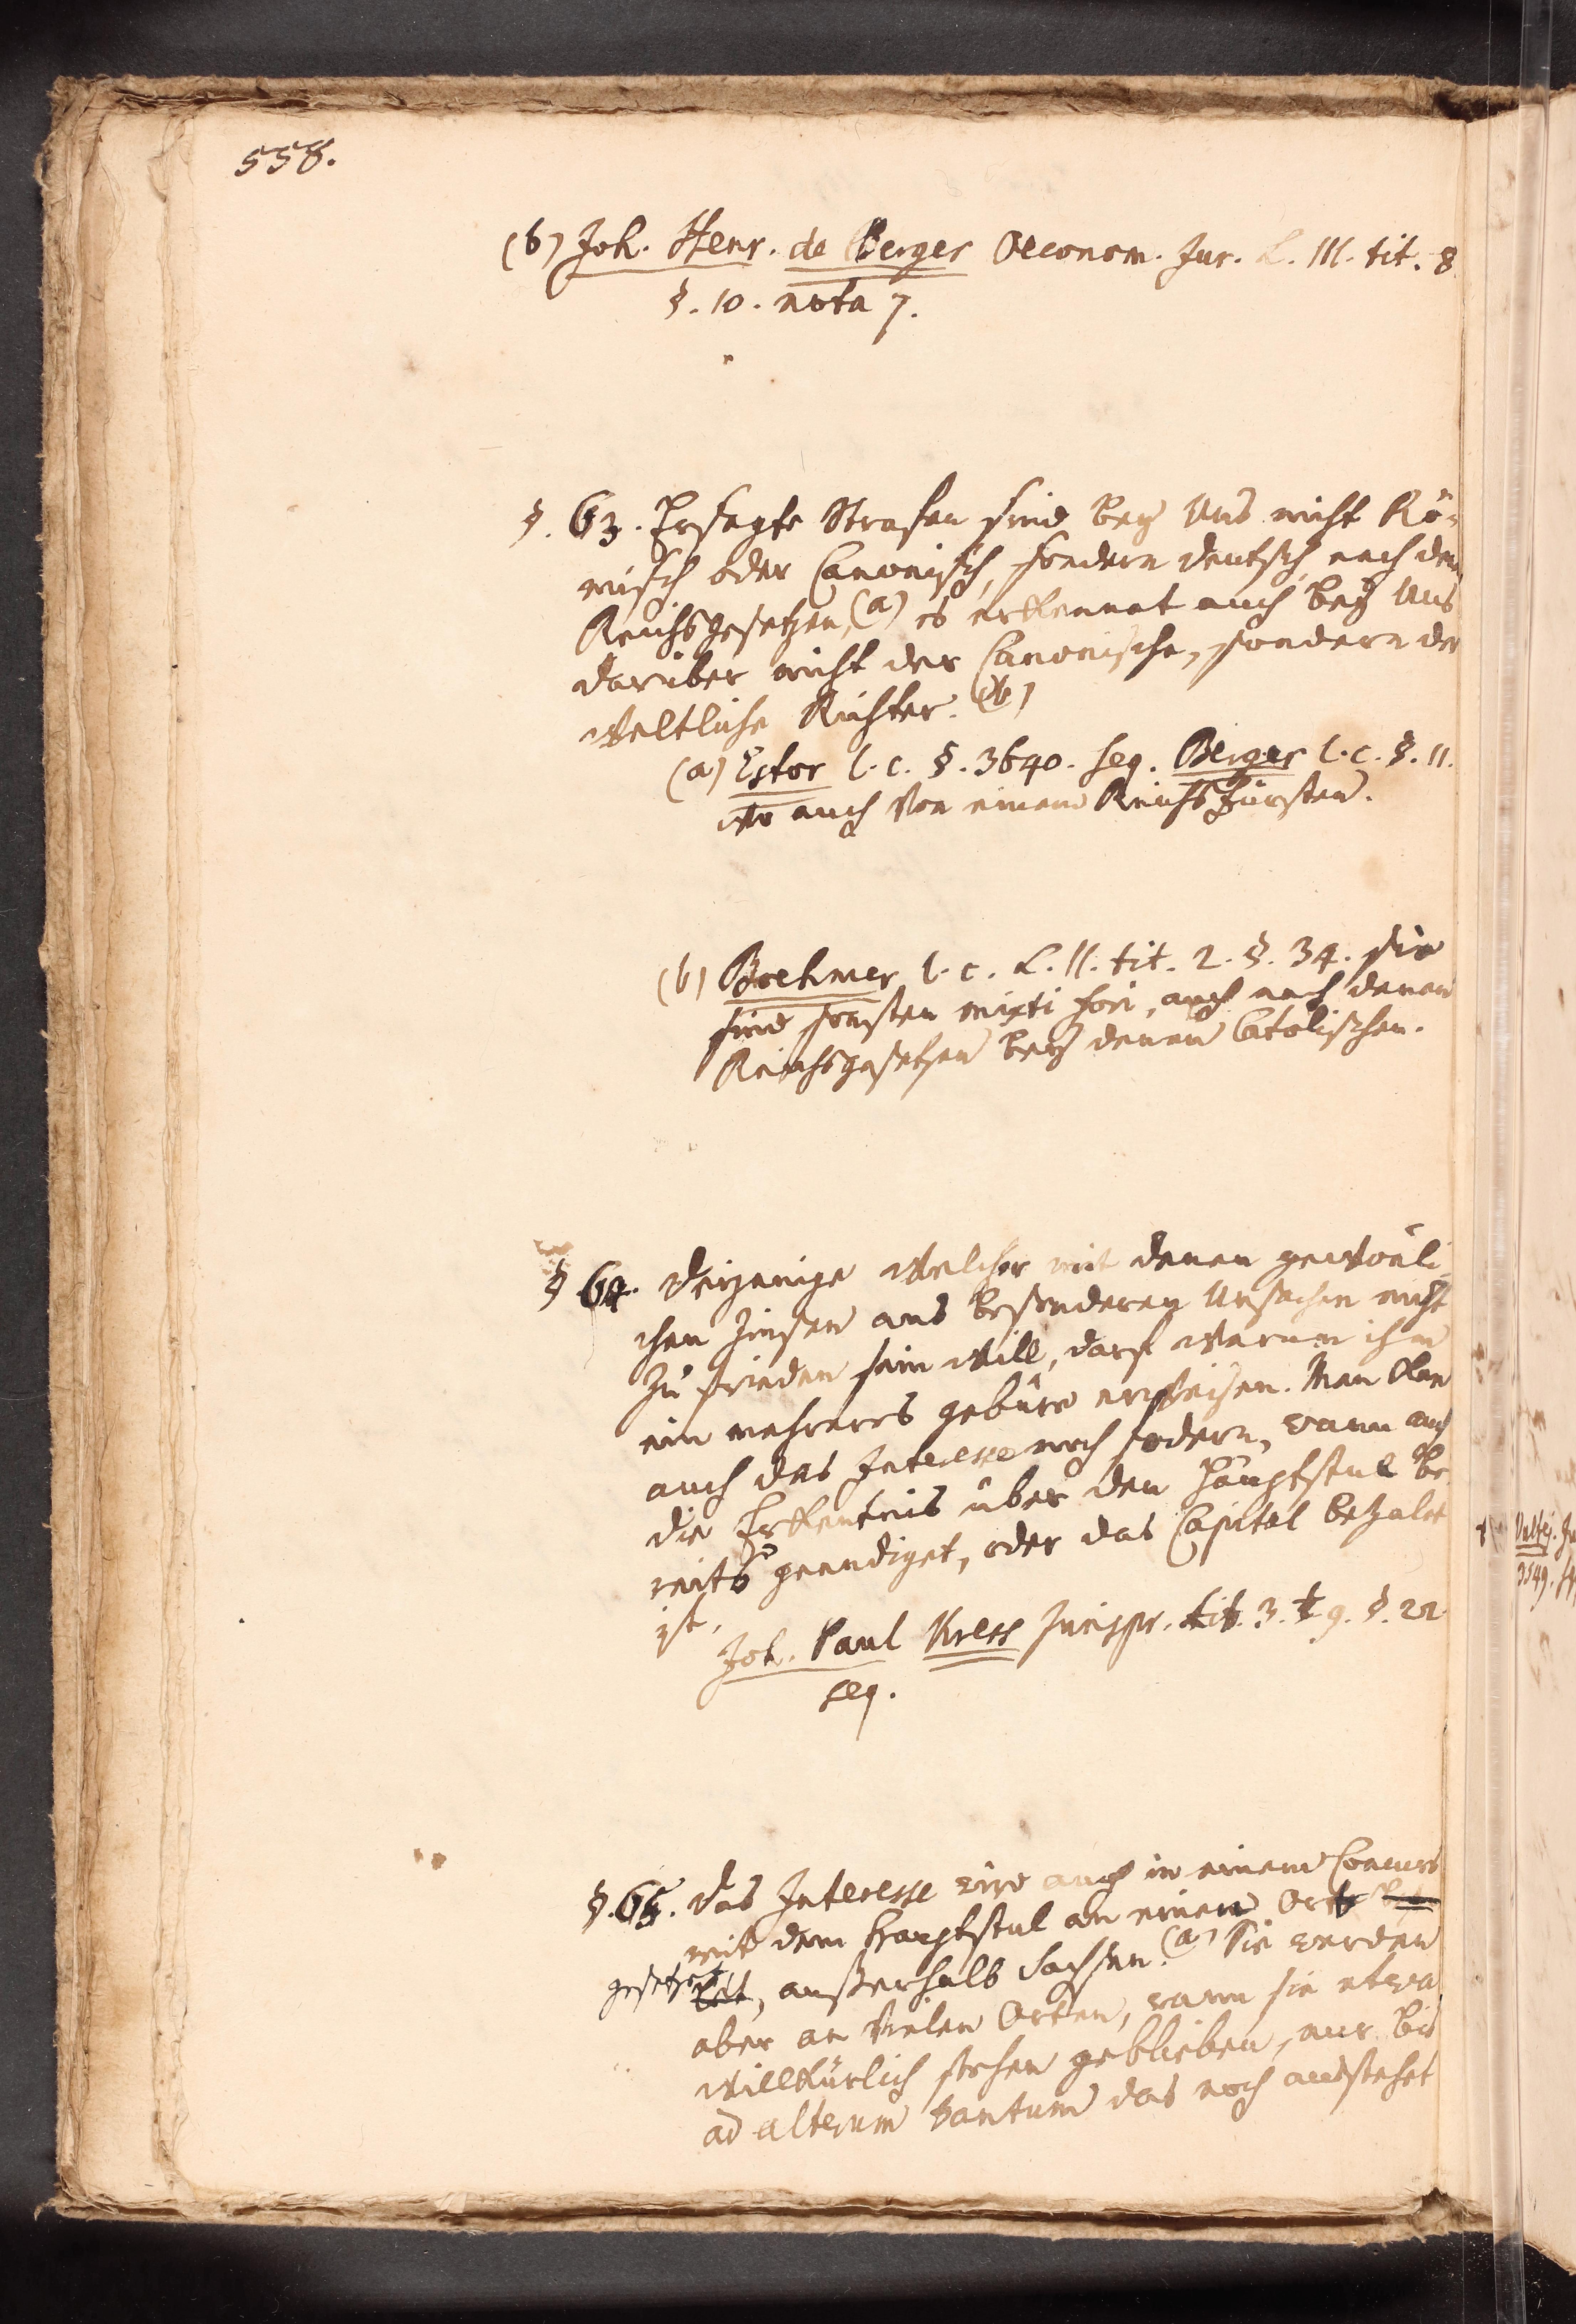 558.
(b) Joh. Henr. de Berger Oeconom. Jur. L. III. tit. 8.
§. 10. nota 7.
§. 63. Ersagte Strafen sind bey Uns nicht Rö-
misch oder Canonisch, sondern deutsch nach den
Reichsgesetzen, (a) es erkennet auch bey Uns
darüber nicht der Canonische, sondern der
weltliche Richter. (b)
(a) Estor l. c. §. 3640. seq. Berger l. c. §. 11.
wo auch von einem Reichsfürsten.
(b) Boehmer l. c. L. II. tit. 2. §. 34. sie
sind sonsten mixti fori, auch nach denen
Reichsgesetzen bey denen Catolischen.
§ 64. derjenige welcher mit denen gewönli-
chen Zinsen aus besonderen Ursachen nicht
zu frieden sein will, darf warum ihm
ein mehreres gebüre erweisen. Man kan
auch das Interesse noch fodern, wann auch
die Erkentnis über den Hauptstul be
reits geendiget, oder das Capital bezalet
ist.
Joh. Paul Kress Jurispr. tit. 3. t 9. §. 22
seq.
§. 65. das Interesse wird auch in einem Concurs
mit dem Hauptstul an einen Ort
gesetzet, außerhalb Sachsen. (a) Sie werden
aber an vielen Orten, wann sie etwa
willkürlich stehen geblieben, nur bis
ad alterum tantum das noch ausstehet
Ius. Ju
3549. se